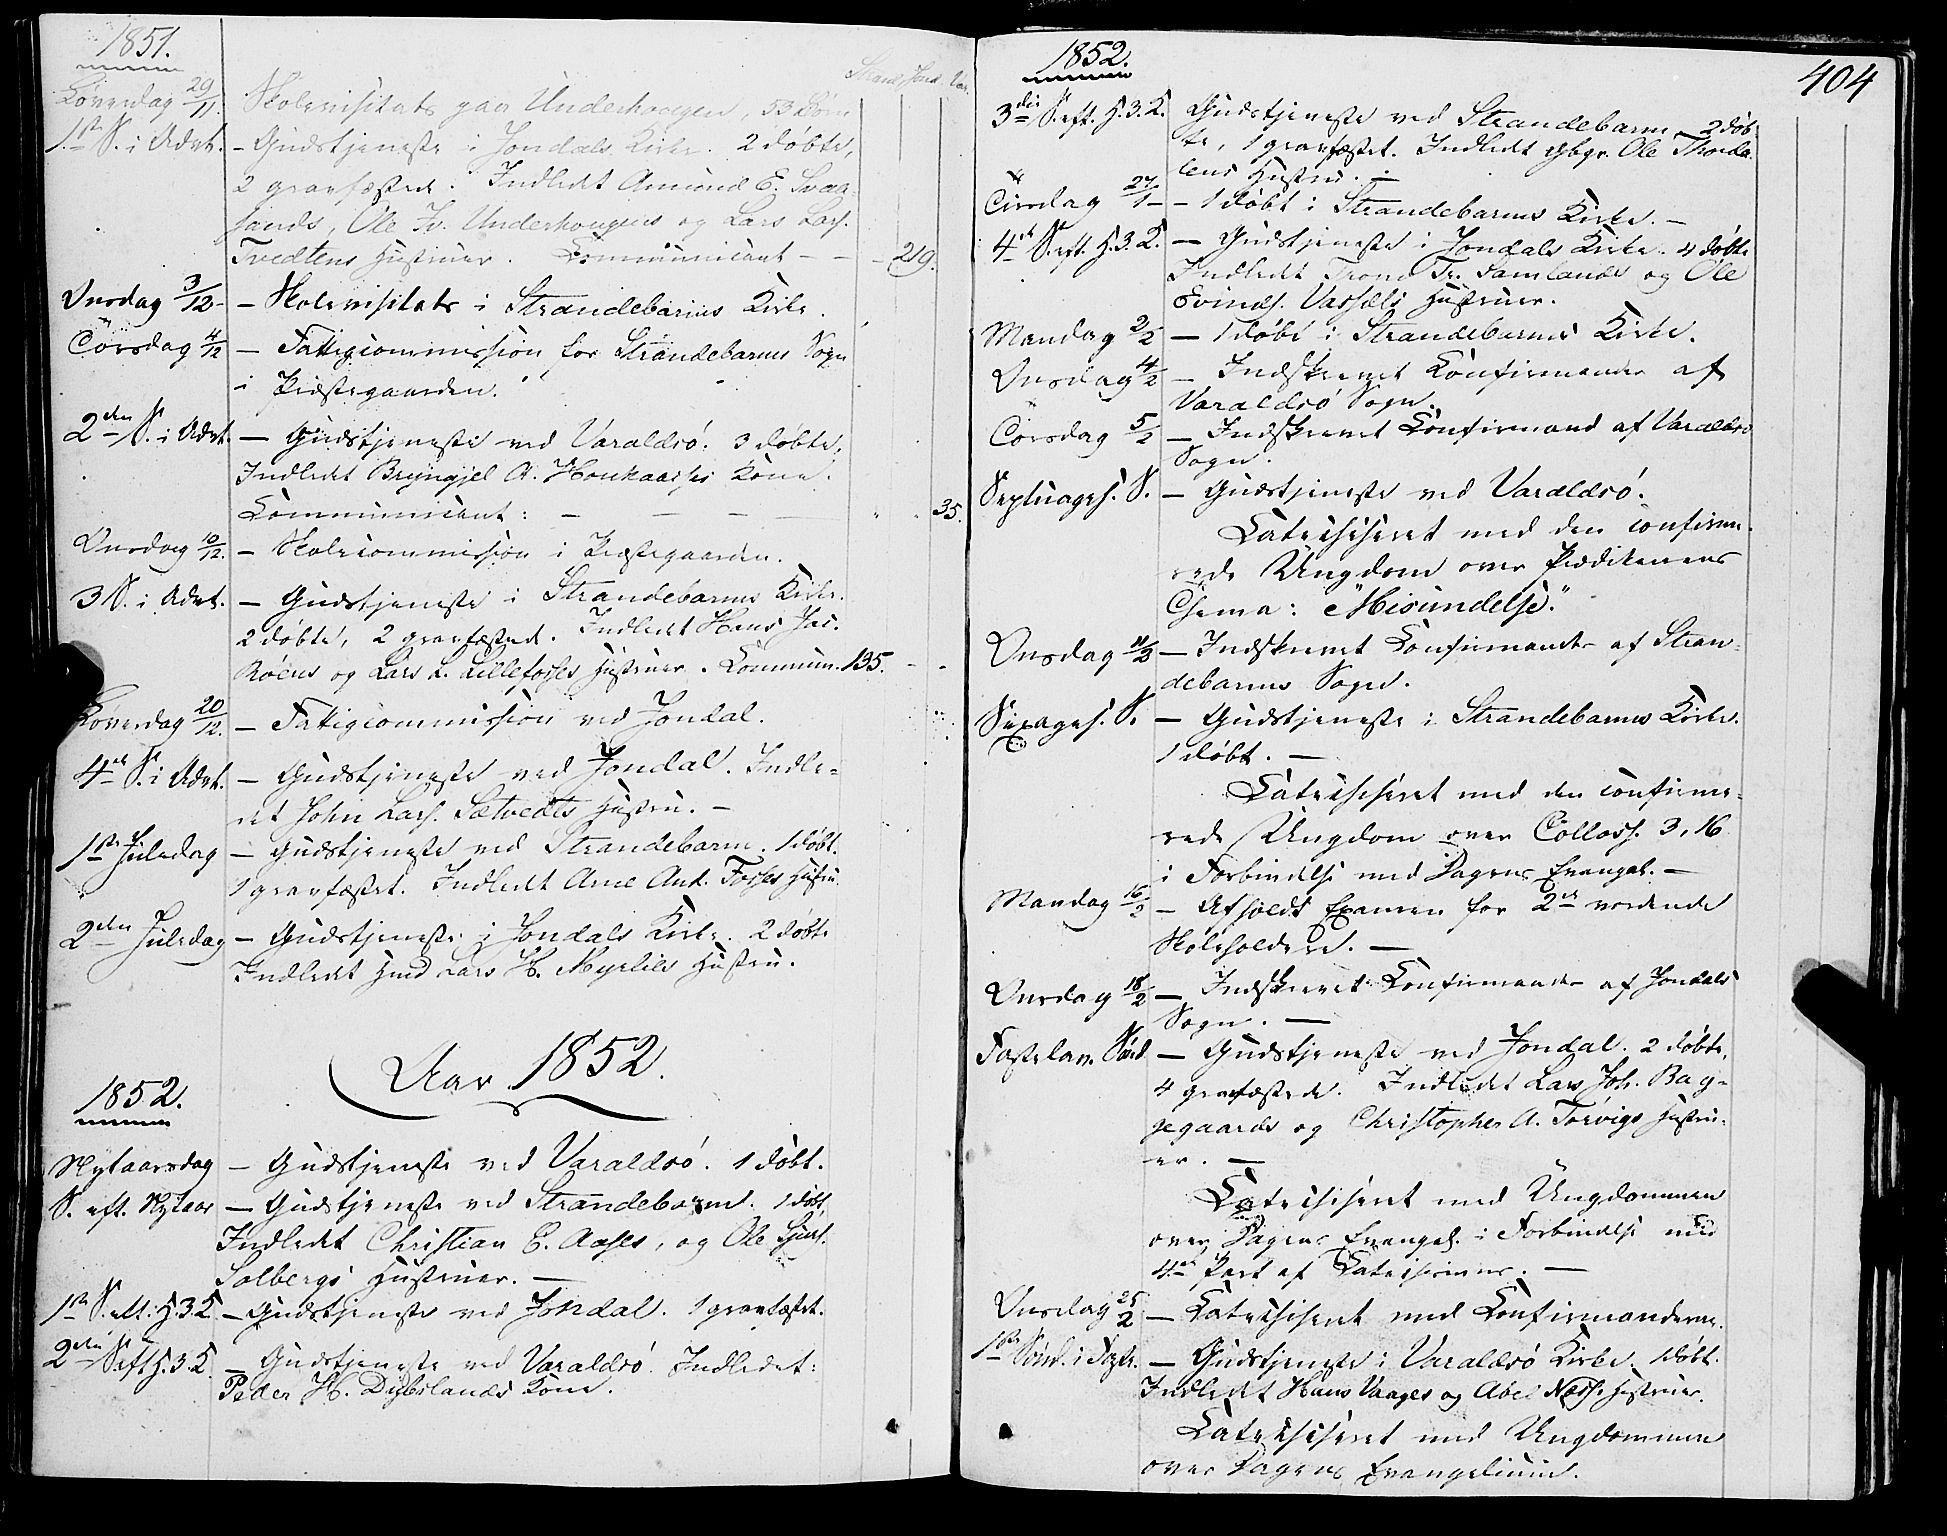 1851.
Strand. Jond. Var.
Löverdag 29/11. Skolevisitats paa Underhougen, 53 Börn
1ste S. i Advt. - Gudstjeneste i Jondals Kirke. 2 döbte,
2 gravfæstede. Indledet Amund E. Svaa-
sands, Ole Iv. Underhougens og Lars Lars.
Tvedtens Hustruer. Communicant - - - 219.
Onsdag 3/12 - Skolevisitats i Strandebarms Kirke.
Törsdag 4/12 - Fattigcommission for Strandebarms Sogn
i Præstegaarden.
2den S. i Advt. - Gudstjeneste ved Varaldsö. 3 döbte,
Indledet Bryngjel A. Honkaas's Kone.
Communicant: - - - - 35.
Onsdag 10/12. - Skolecommission i Præstegaarden.
3 S. i Advt. - Gudstjeneste i Strandebarms Kirke.
2 döbte, 2 gravfæstede. Indledet Hans Jac.
Roens og Lars L. Lillefosses Hustruer. Commun. 135. - -
Löverdag 20/12. - Fattigcommission ved Jondal.
4de S. i Advt. - Gudstjeneste ved Jondal. Indle-
det John Lars. Sætvedts Hustru. -
1ste Juledag - Gudstjeneste ved Strandebarm. 1 döbt.
1 gravfæstet. Indledet Arne And. Fosses Hustru
2den Juledag - Gudstjeneste i Jondals Kirke. 2 döbte
Indledet Hmd Lars H. Myrlies Hustru.
Aar 1852.
1852.
Nytaarsdag - Gudstjeneste ved Varaldsö. 1 döbt.
S. eft. Nytaar - Gudstjeneste ved Strandebarm. 1 döbt,
Indledet Christian E. Aases, og Ole
Solbergs Hustruer. -
1ste S. eft. H. 3. K. - Gudstjeneste ved Jondal. 1 gravfæstet.
2den S. eft H. 3. K. - Gudstjeneste ved Varaldsö. Indledet:
Peder H. Dybslands Kone.
1852.
404
3die S. eft. H. 3. K. Gudstjeneste ved Strandebarm 2 döb-
te, 1 gravfæstet. Indledet Gbgr. Ole Thorda-
lens Hustru. -
Tirsdag 27/1 - - 1 döbt i Strandebarms Kirke. -
4de S. eft. H. 3. K. - Gudstjeneste i Jondals Kirke. 4 döbte
Indledet Trond Tr. Samlands og Ole
Evinds. Vassels Hustruer.
Mandag 2/2 - 1 döbt i Strandebarms Kirke.
Onsdag 4/2 - Indskrevet Confirmander af
Varaldsö Sogn.
Törsdag 5/2 - Indskrevet Confirmand af Varaldsö
Sogn.
Septuages. S. - Gudstjeneste ved Varaldsö.
Catechiseret med den confirme-
rede Ungdom over Prædikenens
Thema: "Misundelse."
Onsdag 11/2 - Indskrevet Confirmander af Stran-
debarms Sogn.
Sexages. S. - Gudstjeneste i Strandebarms Kirke.
1 döbt. -
Catechiseret med den confirme-
rede Ungdom over Colloss. 3, 16
i Forbindelse med Dagens Evangel. -
Mandag 16/2 - Afholdt Examen for 2de vordende
Skoleholdere. -
Onsdag 18/2 - Indskrevet Confirmander af Jondals
Sogn. -
Fastelavn Sönd. - Gudstjeneste ved Jondal. 2 döbte,
4 gravfæstede. Indledet Lars Joh. Bag-
gegaards og Christopher A. Törvigs Hustru-
er. -
Catechiseret med Ungdommen
over Dagens Evangel. i Forbindelse med
4de Part af Catechismus. -
Onsdag 25/2 - Catechiseret med Confirmanderne.
1ste Sönd. i Faste. - Gudstjeneste i Varaldsö Kirke. 1 döbt.
Indledet Hans Vaages og Abel Næss's Hustruer.
Catechiseret med Ungdommen
over Dagens Evangelium.